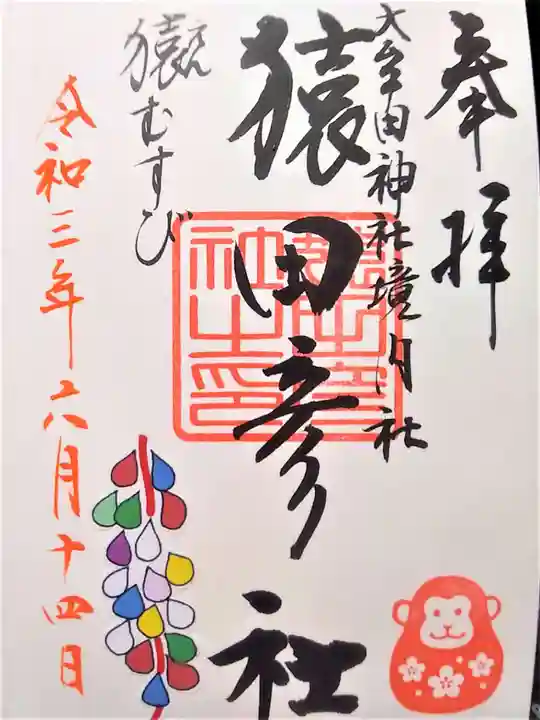 奉拝
大牟田神社境内社
猿田彦社
猿むすび
令和三年六月十四日